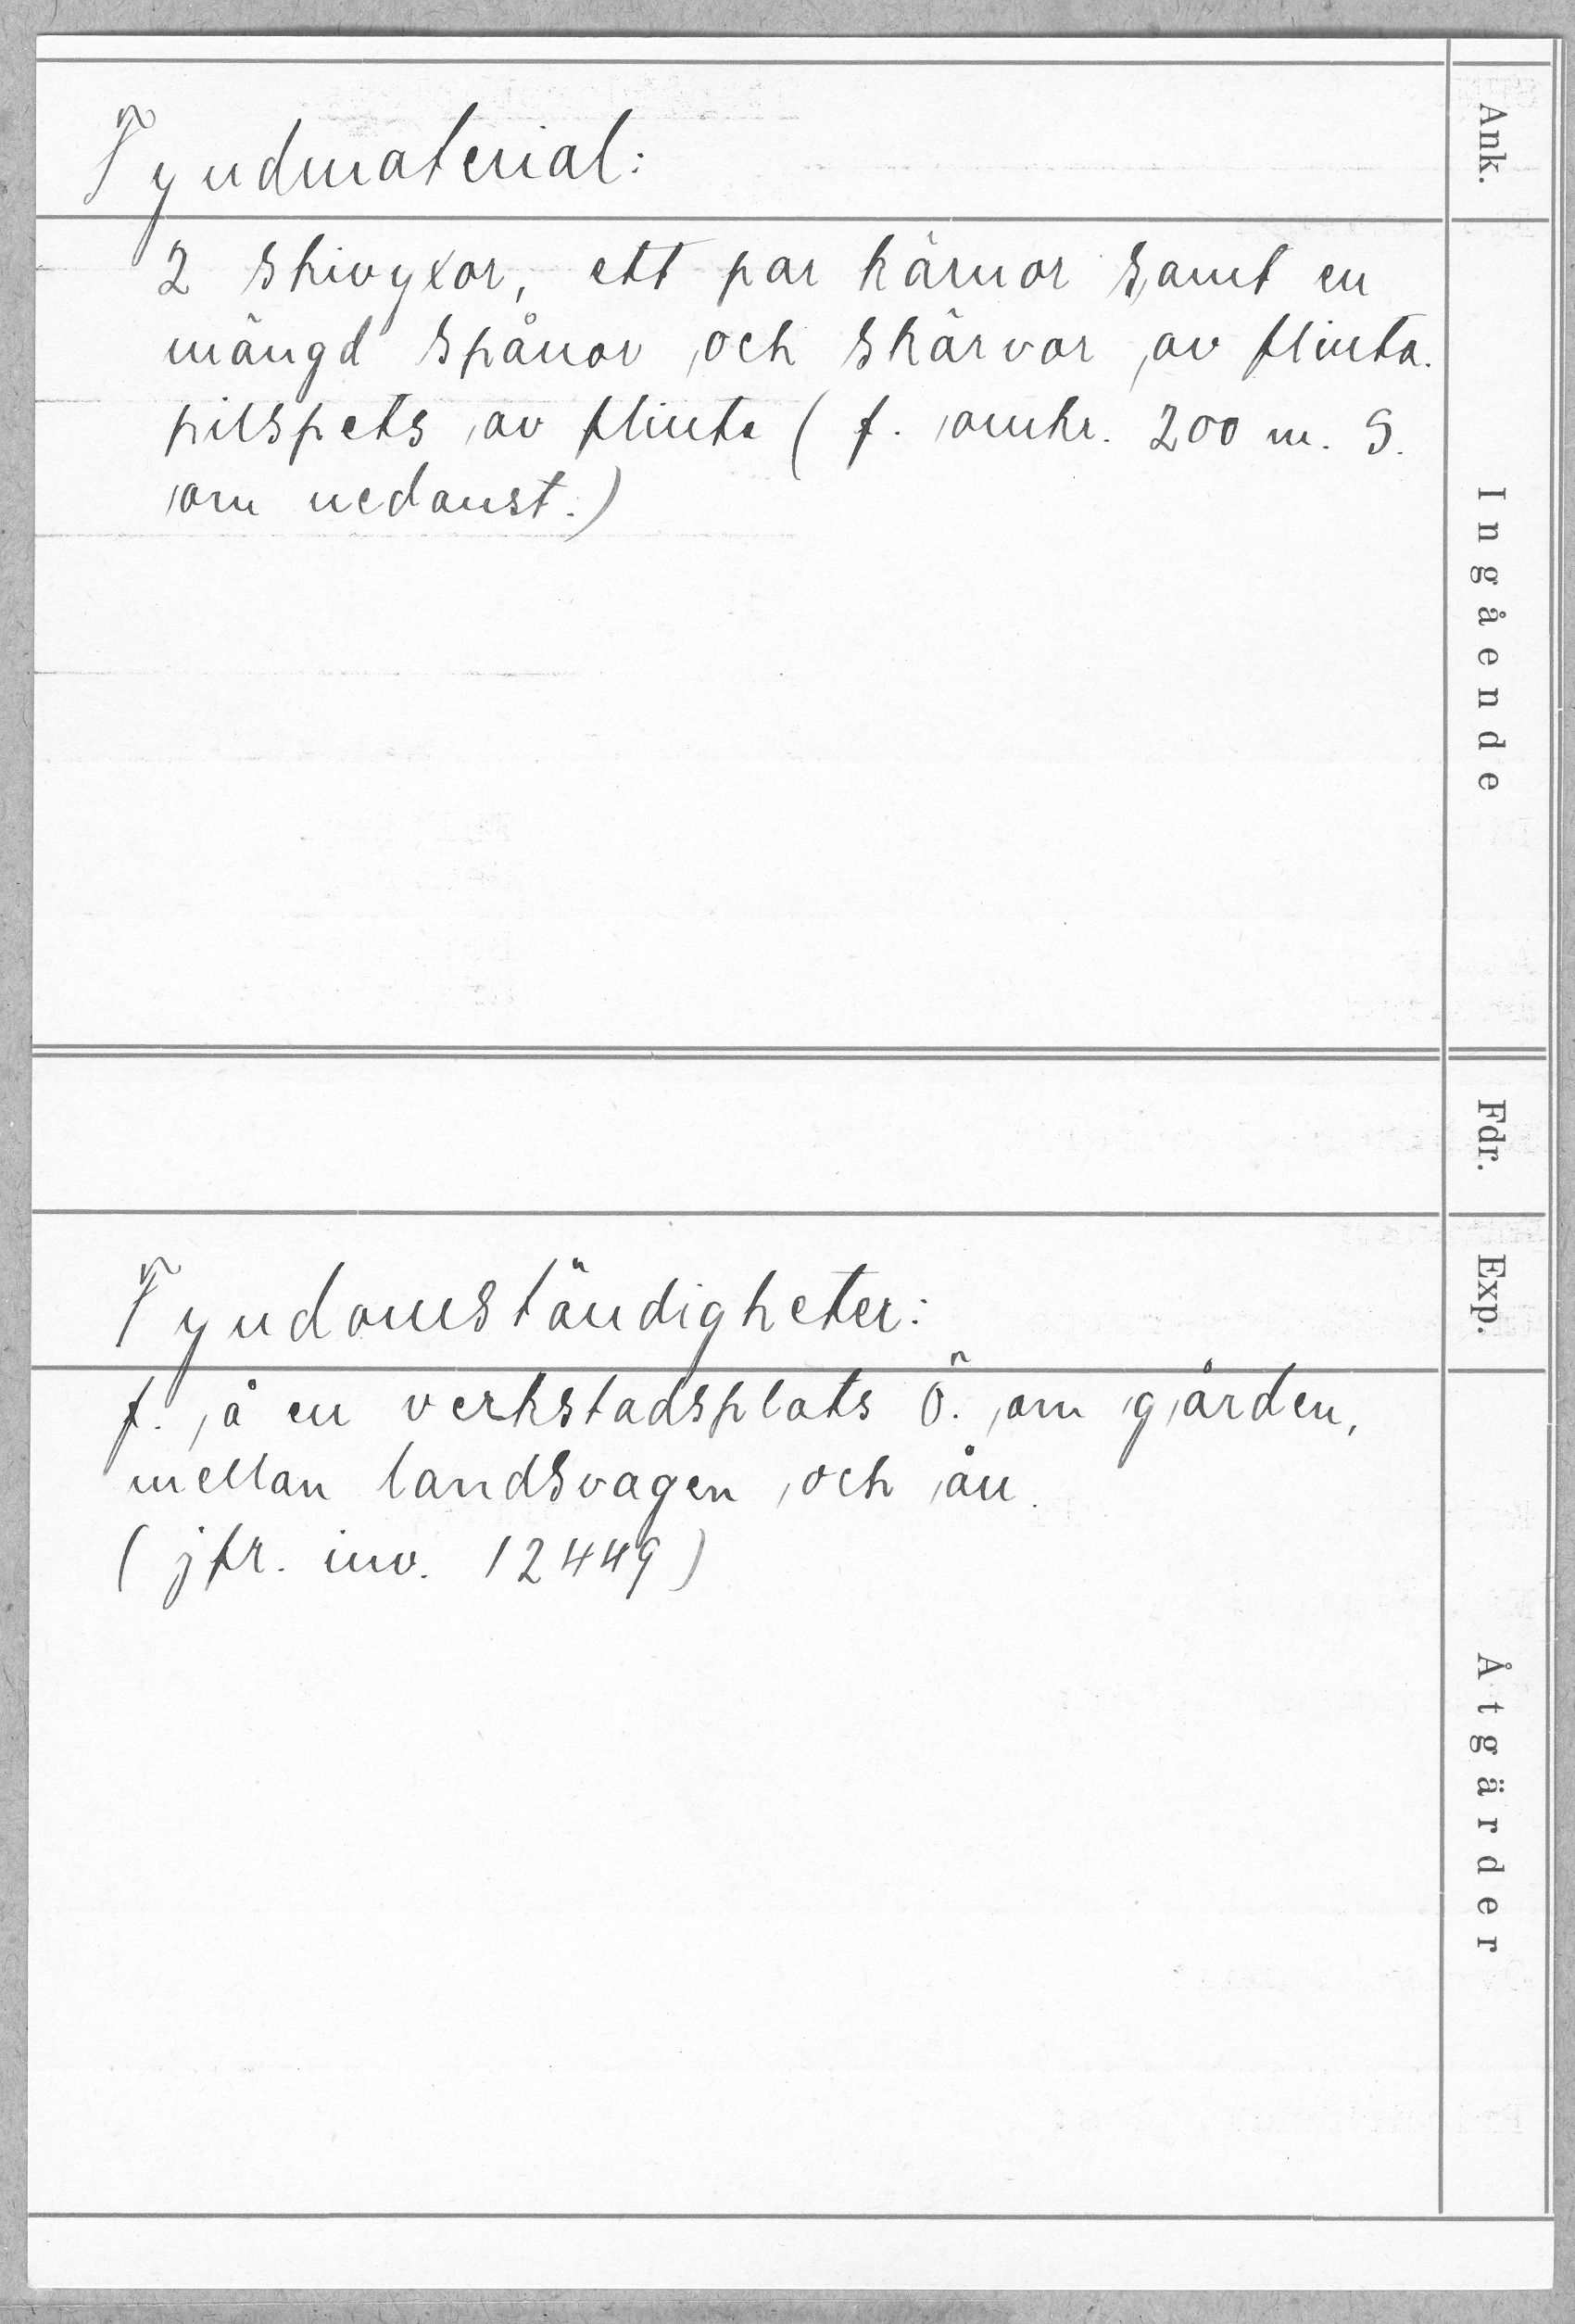 Fyndmaterial:
2 skivyxor, ett par kärnor samt en
mängd spånor och skärvor av flinta.
pilspets av flinta (f. omkr. 200 m. S.
om nedanst.)
Fyndomständigheter:
f. å en verkstadsplats Ö. om gården,
mellan landsvagen och ån.
(jfr. inv. 12449)
Ank.
Ingående
Fdr.
Exp.
Åtgärder